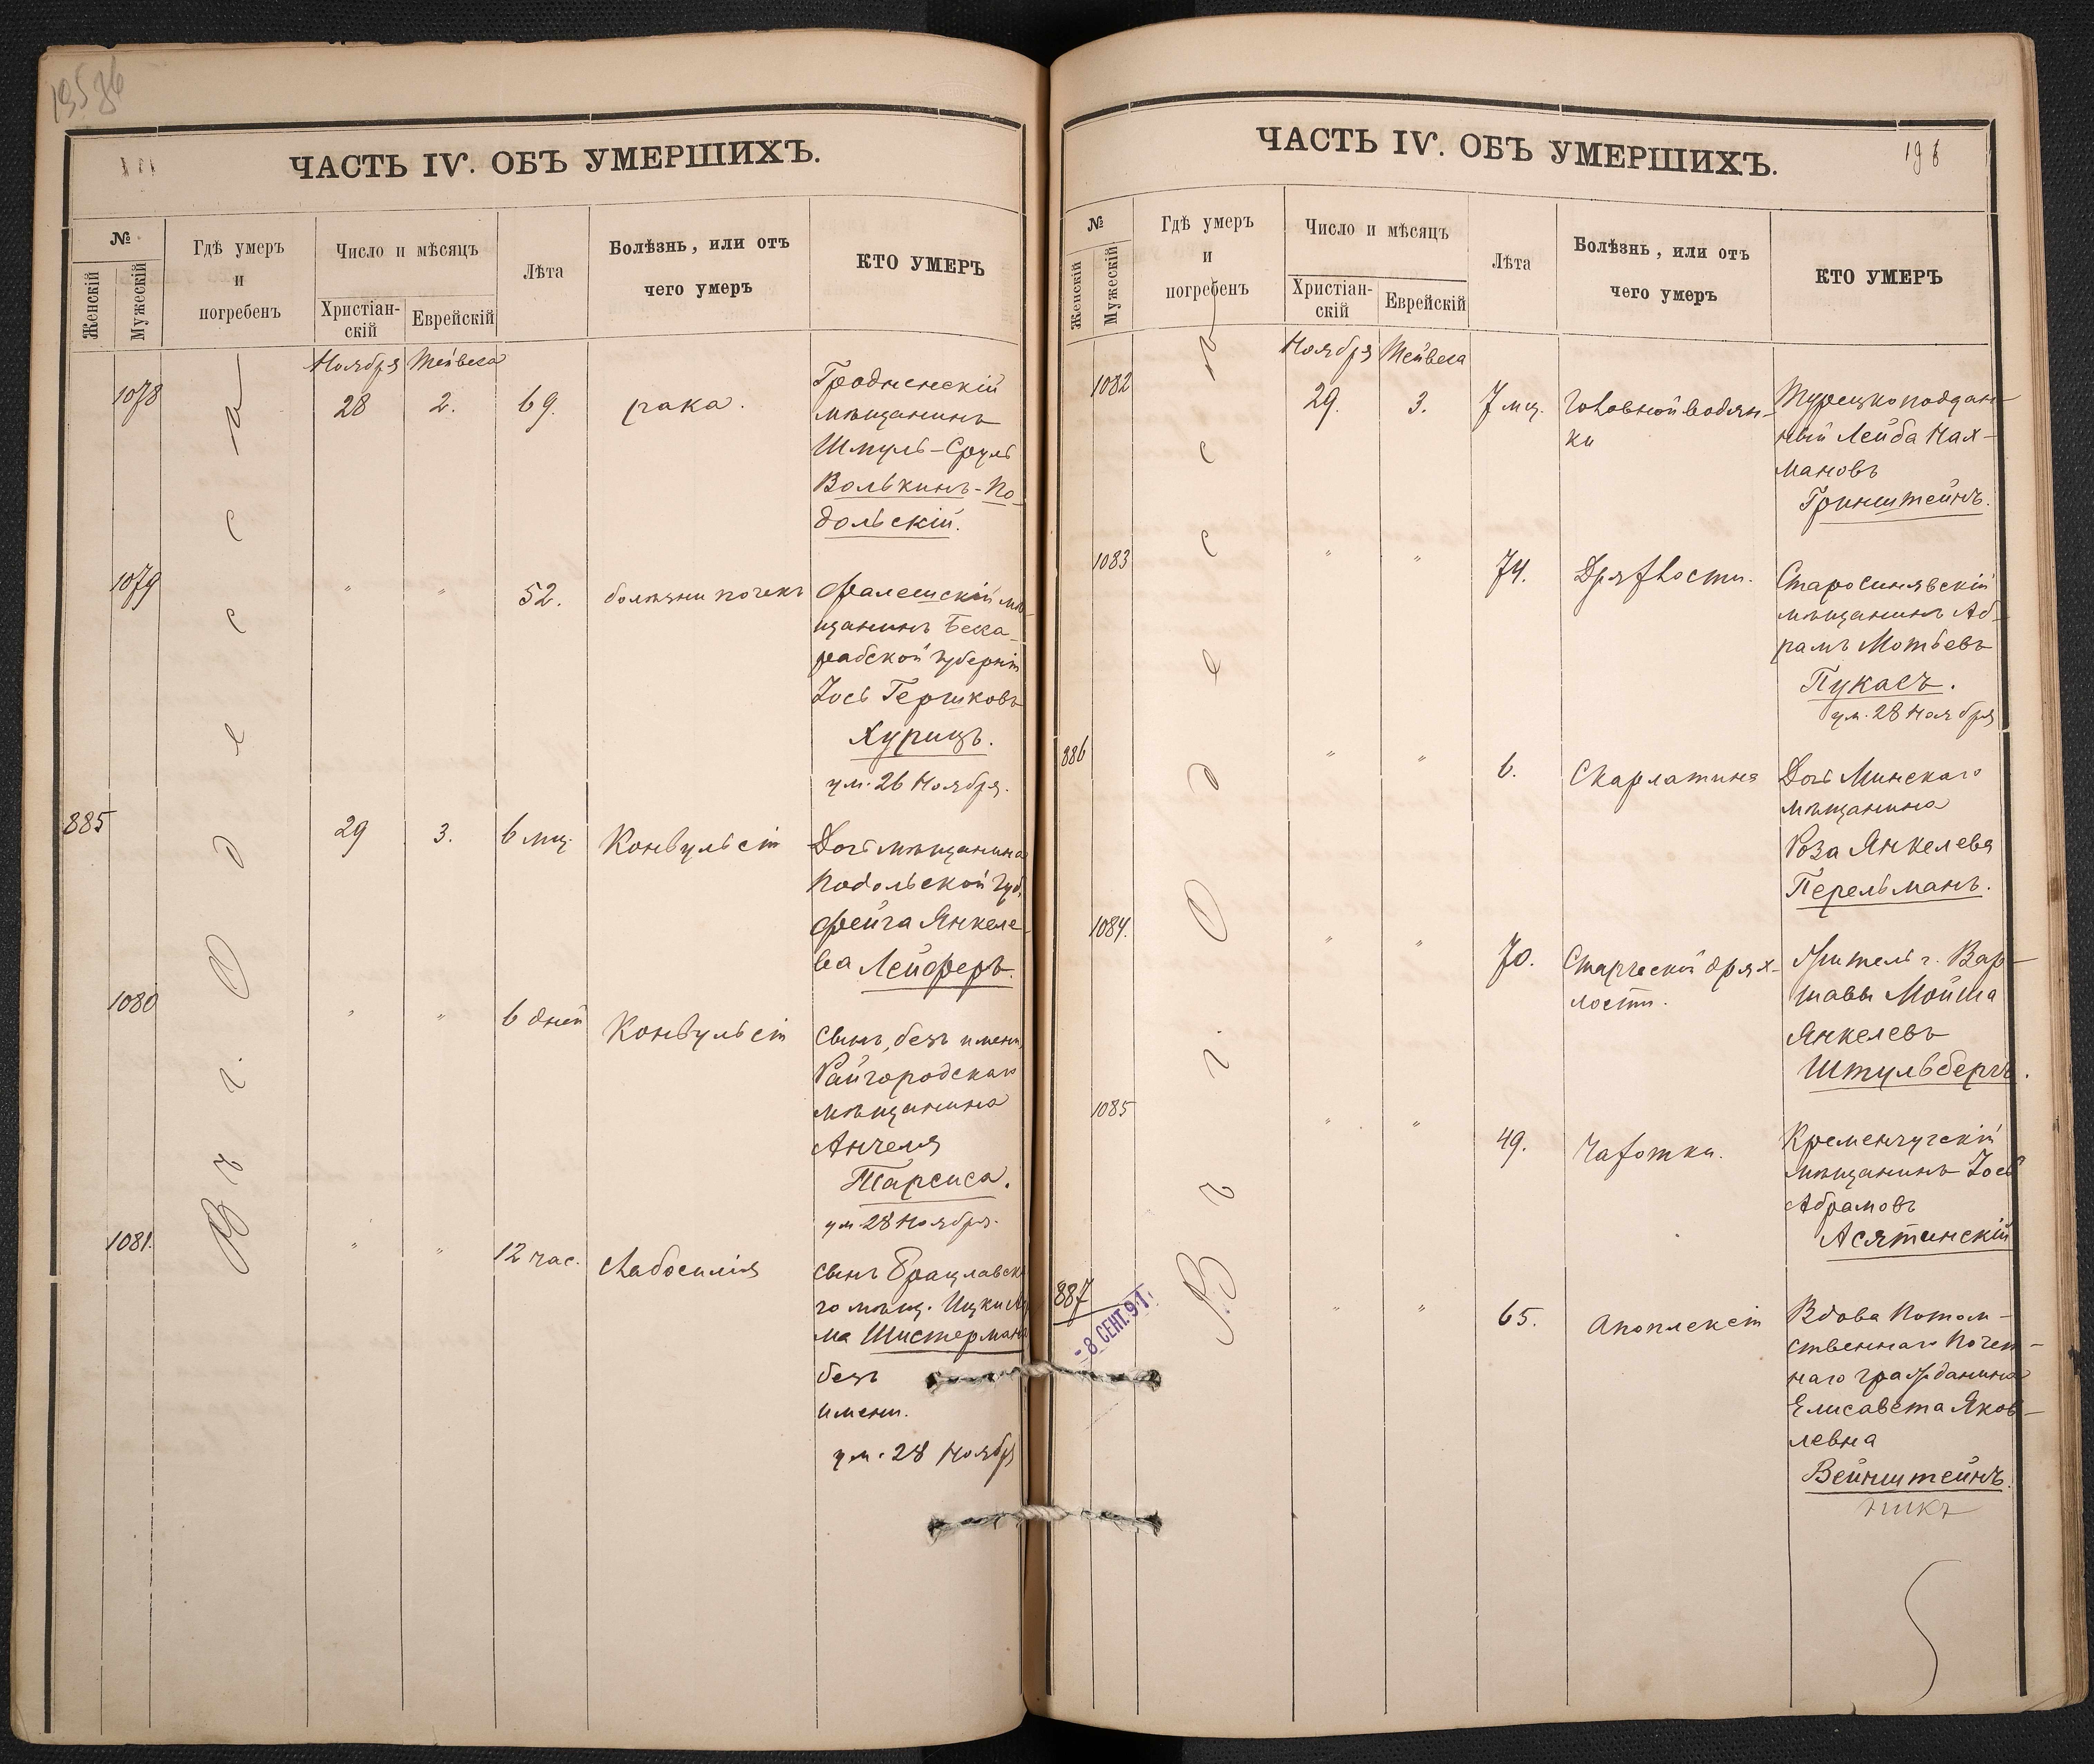 ЧАСТЬ IV. ОБЪ УМЕРШИХЪ.
№
Женскій
Мужескій
Гдѣ умеръ
и
погребенъ
Число и мѣсяцъ
Христіан-
скій
Еврейскій
Лѣта
Болѣзнь, или отъ
чего умеръ
КТО УМЕРЪ
Ноября Тейвеса
Въ г. Одесса
1078 28 2. 69. рака. Гродненскій
мѣщанинъ
Шмуль-Сруль
Волькинъ-По-
дольскій.
1079 " " 52. болѣзни почекъ Фалешскій мѣ-
щанинъ Бесса-
рабской губерніи
Іось Гершковъ
Хурицъ.
ум. 26 Ноября.
885 29 3. 6 мц. Конвульсіи Дочь мѣщанина
Подольской губ.
Фейга Янкеле-
ва Лейферъ.
1080 " " 6 дней Конвульсіи Сынъ, безъ имени,
Райгородскаго
мѣщанина
Анчеля
Тарсиса.
ум. 28 Ноября.
1081. " " 12 час. Слабосилія Сынъ Брацлавска
го мѣщ. Ицки
ма Шистерманъ
безъ
имени.
ум. 28 Ноября
ЧАСТЬ IV. ОБЪ УМЕРШИХЪ.
№
Женскій
Мужескій
Гдѣ умеръ
и
погребенъ
Число и мѣсяцъ
Христіан-
скій
Еврейскій
Лѣта
Болѣзнь, или отъ
чего умеръ
КТО УМЕРЪ
Ноября Тейвеса
Въ г. Одесса
1082 29. 3. 7 мц. Головной водян-
ки
Турецкоподдан-
ный Лейба Нах-
мановъ
Гринштейнъ.
1083 " " 74. Дряхлости. Старосинявскій
мѣщанинъ Аб-
рамъ Мотьевъ
Пукасъ.
ум. 28 Ноября
886 " " 6. Скарлатина Дочь Минскаго
мѣщанина
Роза Янкелева
Перельманъ.
1084. " " 70. Старческой дрях-
лости.
Житель г. Вар-
шавы Мойша
Янкелевъ
Штульбергъ.
1085 " " 49. Чахотки. Кременчугскій
мѣщанинъ Іось
Абрамовъ
Асятинскій
887 " " 65. Апоплексіи Вдова Потом-
ственнаго Почет-
наго гражданина
Елисавета Яков-
левна
Вейнштейнъ.
- 8 СЕНТ. 91.